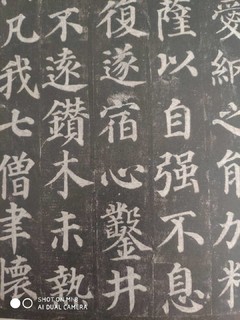 愛網之能加精
薩以自强不息
復遂宿心鑿井
不遠鑽木未熱
凡我七僧聿懷
SHOT ON MI 8
AI DUAL CAMERA